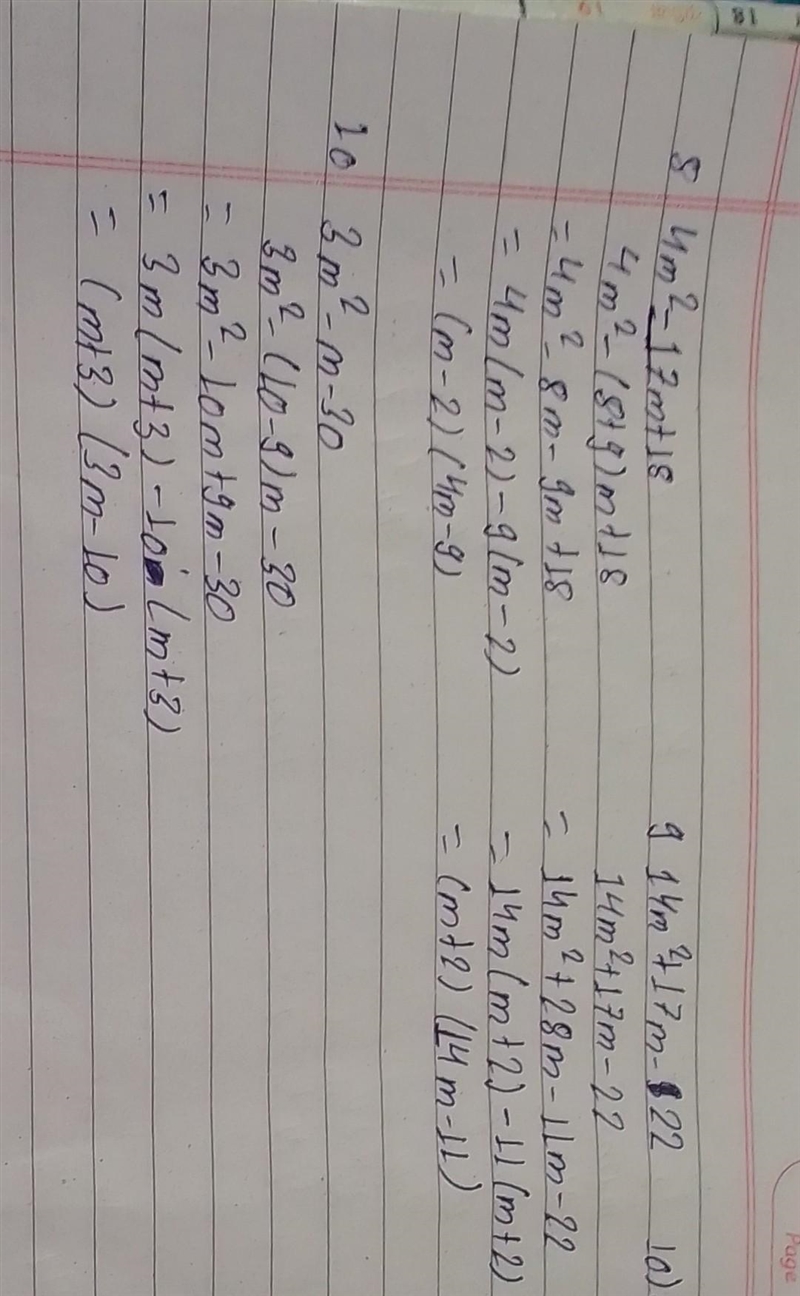 8 4m² - 17m + 18
4m² - (8+9)m + 18
= 4m² - 8m - 9m + 18
= 4m(m-2) - 9(m-2)
= (m-2)(4m-9)
9 14m² + 17m - 22
14m² + 17m - 22
= 14m² + 28m - 11m - 22
= 14m(m+2) - 11(m+2)
= (m+2)(14m-11)
10)
10 3m² - m - 30
3m² - (10-9)m - 30
= 3m² - 10m + 9m - 30
= 3m(m+3) - 10(m+3)
= (m+3)(3m-10)
Page
18